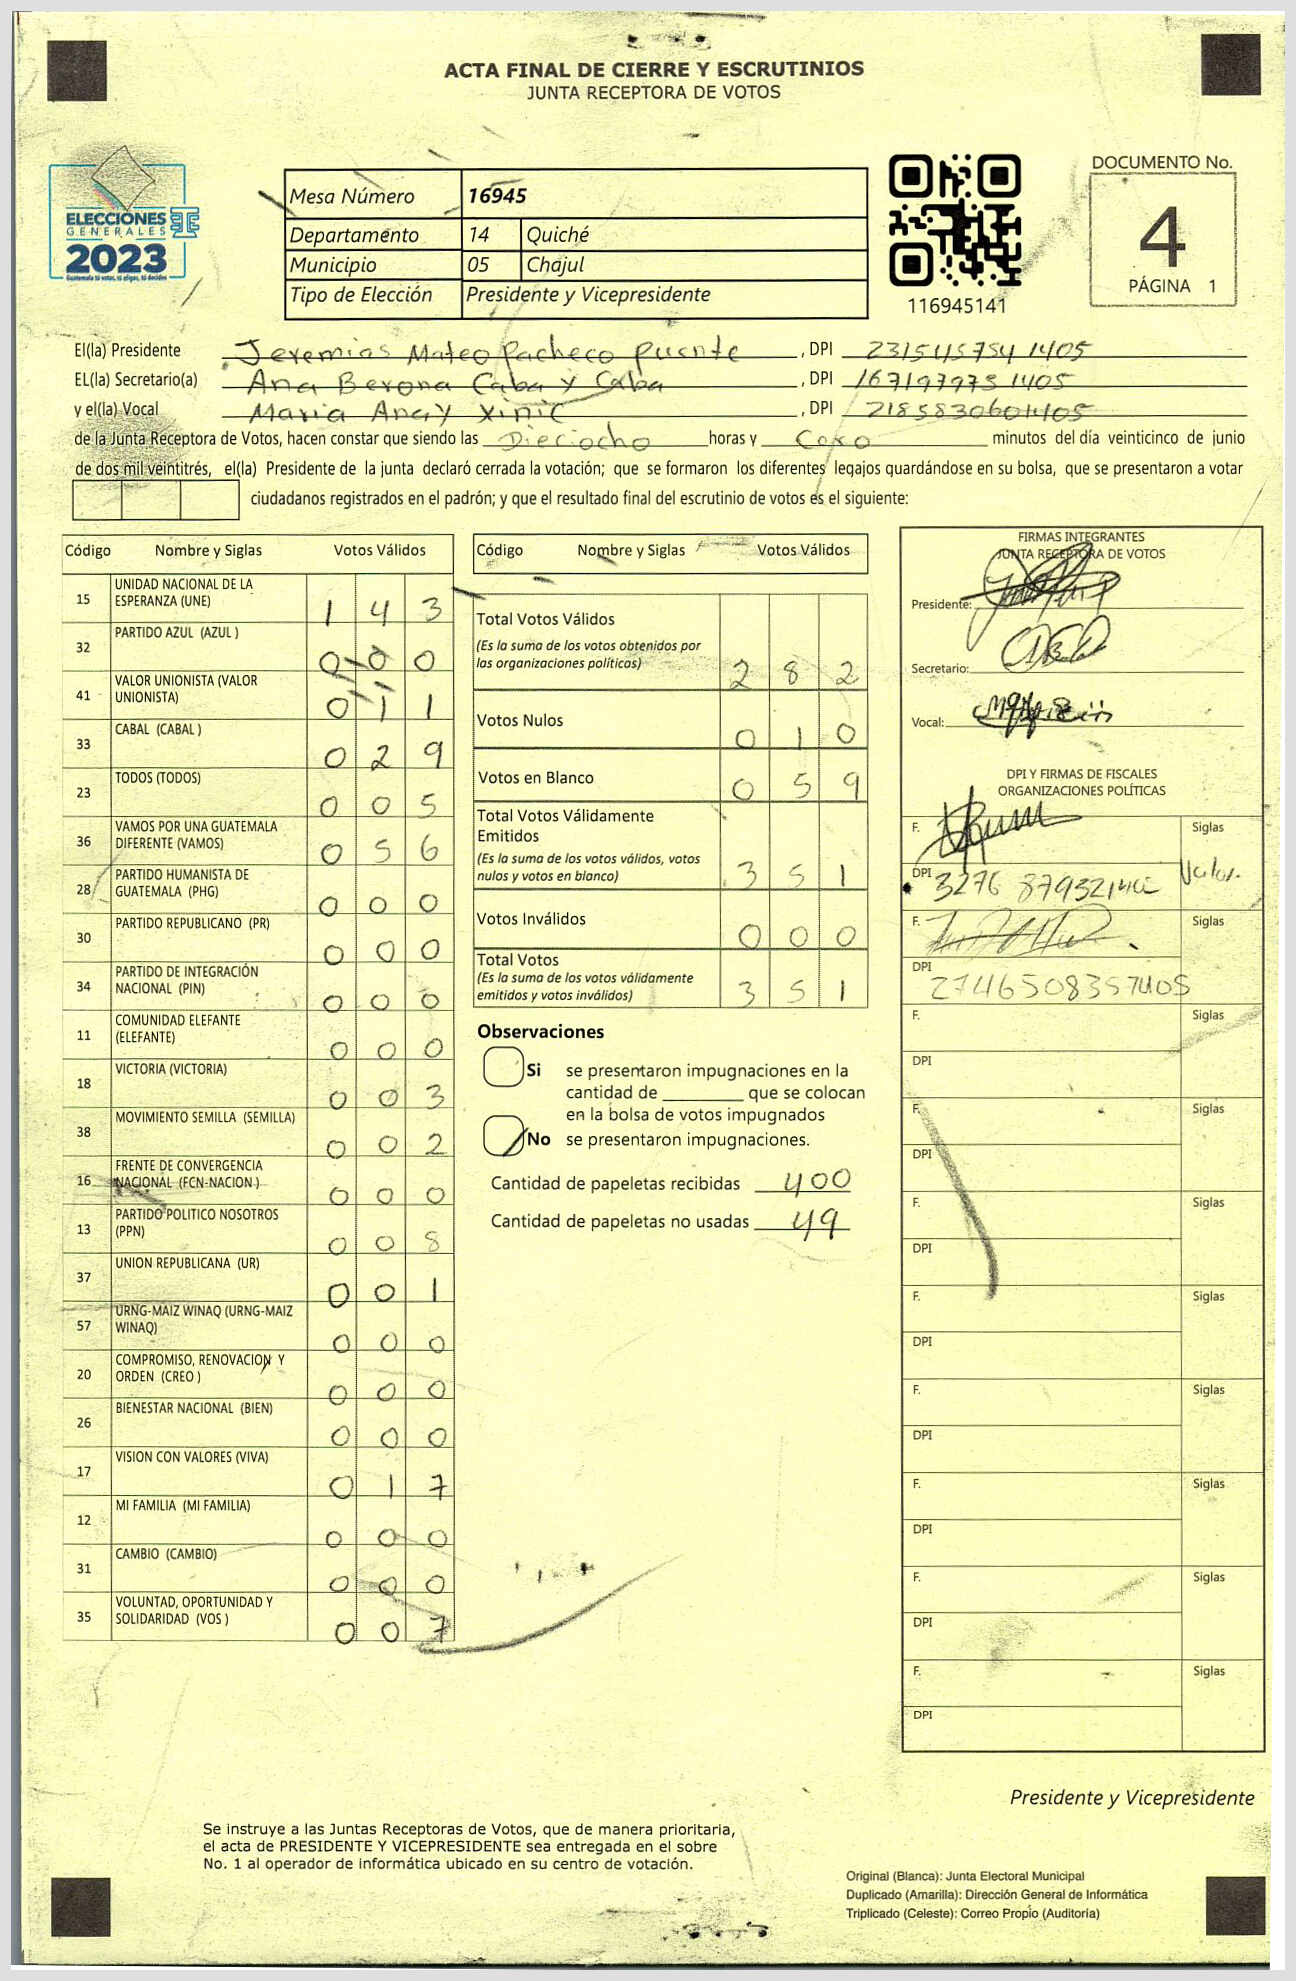 ACTA FINAL DE CIERRE Y ESCRUTINIOS
JUNTA RECEPTORA DE VOTOS
ELECCIONES
GENERALES
2023
Guatemala tú votas, tú eliges, tú decides
Mesa Número 16945
Departamento 14 Quiché
Municipio 05 Chajul
Tipo de Elección Presidente y Vicepresidente
116945141
DOCUMENTO No.
4
PÁGINA 1
El(la) Presidente Jeremias Mateo Pacheco Puente, DPI 231545754 1405
EL(la) Secretario(a) Ana Berona Caba y Caba, DPI 167197973 1405
y el(la) Vocal Maria Anay Xinic, DPI 2185830601405
de la Junta Receptora de Votos, hacen constar que siendo las Dieciocho horas y Cero minutos del día veinticinco de junio
de dos mil veintitrés, el(la) Presidente de la junta declaró cerrada la votación; que se formaron los diferentes legajos guardándose en su bolsa, que se presentaron a votar
ciudadanos registrados en el padrón; y que el resultado final del escrutinio de votos es el siguiente:
Código Nombre y Siglas Votos Válidos
15 UNIDAD NACIONAL DE LA ESPERANZA (UNE) 1 4 3
32 PARTIDO AZUL (AZUL ) 0 0 0
41 VALOR UNIONISTA (VALOR UNIONISTA) 0 1 1
33 CABAL (CABAL ) 0 2 9
23 TODOS (TODOS) 0 0 5
36 VAMOS POR UNA GUATEMALA DIFERENTE (VAMOS) 0 5 6
28 PARTIDO HUMANISTA DE GUATEMALA (PHG) 0 0 0
30 PARTIDO REPUBLICANO (PR) 0 0 0
34 PARTIDO DE INTEGRACIÓN NACIONAL (PIN) 0 0 0
11 COMUNIDAD ELEFANTE (ELEFANTE) 0 0 0
18 VICTORIA (VICTORIA) 0 0 3
38 MOVIMIENTO SEMILLA (SEMILLA) 0 0 2
16 FRENTE DE CONVERGENCIA NACIONAL (FCN-NACION ) 0 0 0
13 PARTIDO POLITICO NOSOTROS (PPN) 0 0 8
37 UNION REPUBLICANA (UR) 0 0 1
57 URNG-MAIZ WINAQ (URNG-MAIZ WINAQ) 0 0 0
20 COMPROMISO, RENOVACION Y ORDEN (CREO ) 0 0 0
26 BIENESTAR NACIONAL (BIEN) 0 0 0
17 VISION CON VALORES (VIVA) 0 1 7
12 MI FAMILIA (MI FAMILIA) 0 0 0
31 CAMBIO (CAMBIO) 0 0 0
35 VOLUNTAD, OPORTUNIDAD Y SOLIDARIDAD (VOS ) 0 0 7
Código Nombre y Siglas Votos Válidos
Total Votos Válidos
(Es la suma de los votos obtenidos por
las organizaciones políticas) 2 8 2
Votos Nulos 0 1 0
Votos en Blanco 0 5 9
Total Votos Válidamente
Emitidos
(Es la suma de los votos válidos, votos
nulos y votos en blanco) 3 5 1
Votos Inválidos 0 0 0
Total Votos
(Es la suma de los votos válidamente
emitidos y votos inválidos) 3 5 1
Observaciones
Si se presentaron impugnaciones en la
cantidad de ________ que se colocan
en la bolsa de votos impugnados
No se presentaron impugnaciones.
Cantidad de papeletas recibidas 400
Cantidad de papeletas no usadas 49
FIRMAS INTEGRANTES
JUNTA RECEPTORA DE VOTOS
Presidente:
Secretario:
Vocal:
DPI Y FIRMAS DE FISCALES
ORGANIZACIONES POLÍTICAS
F. Siglas
DPI Valor.
F. Siglas
DPI 2746508357405
F. Siglas
DPI
F. Siglas
DPI
F. Siglas
DPI
F. Siglas
DPI
F. Siglas
DPI
F. Siglas
DPI
F. Siglas
DPI
F. Siglas
DPI
Presidente y Vicepresidente
Se instruye a las Juntas Receptoras de Votos, que de manera prioritaria,
el acta de PRESIDENTE Y VICEPRESIDENTE sea entregada en el sobre
No. 1 al operador de informática ubicado en su centro de votación.
Original (Blanca): Junta Electoral Municipal
Duplicado (Amarilla): Dirección General de Informática
Triplicado (Celeste): Correo Propio (Auditoría)